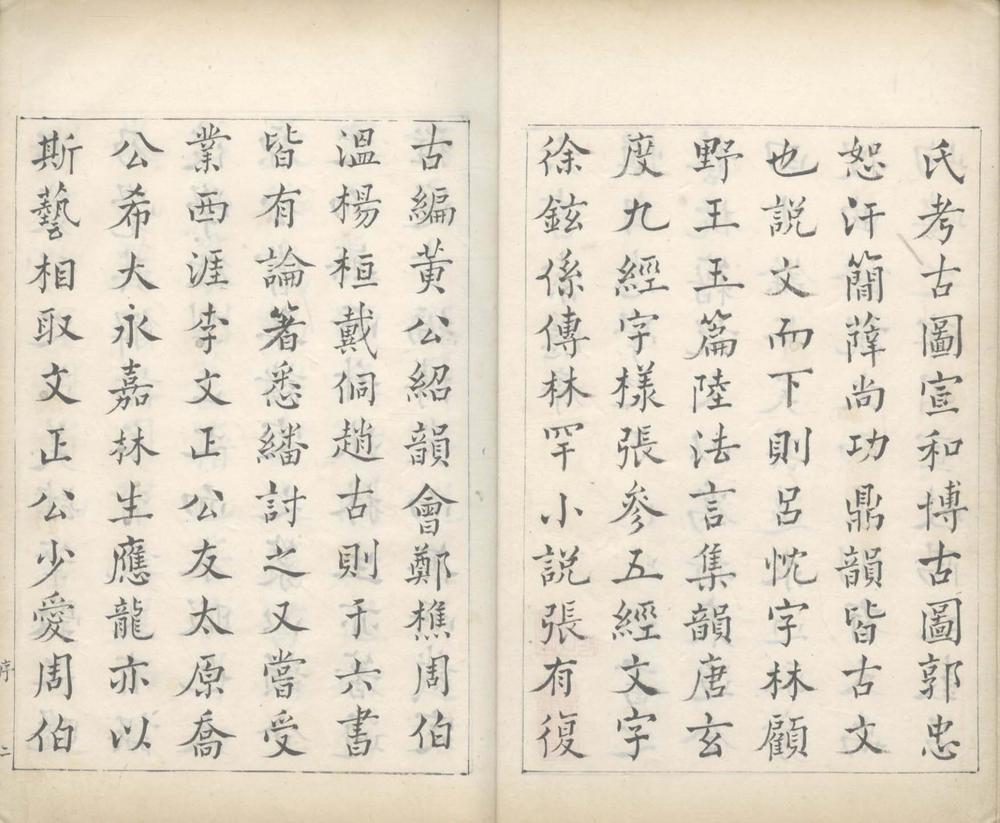 氏考古圖宣和博古圖郭忠
恕汗簡薛尚功鼎韻皆古文
也說文而下則呂忱字林顧
野王玉篇陸法言集韻唐玄
度九經字樣張參五經文字
徐鉉係傳林罕小說張有復
古編黃公紹韻會鄭樵周伯
溫楊桓戴侗趙古則于六書
皆有論著悉繙討之又嘗受
業西涯李文正公友太原喬
公希大永嘉林生應龍亦以
斯藝相取文正公少愛周伯
序 二